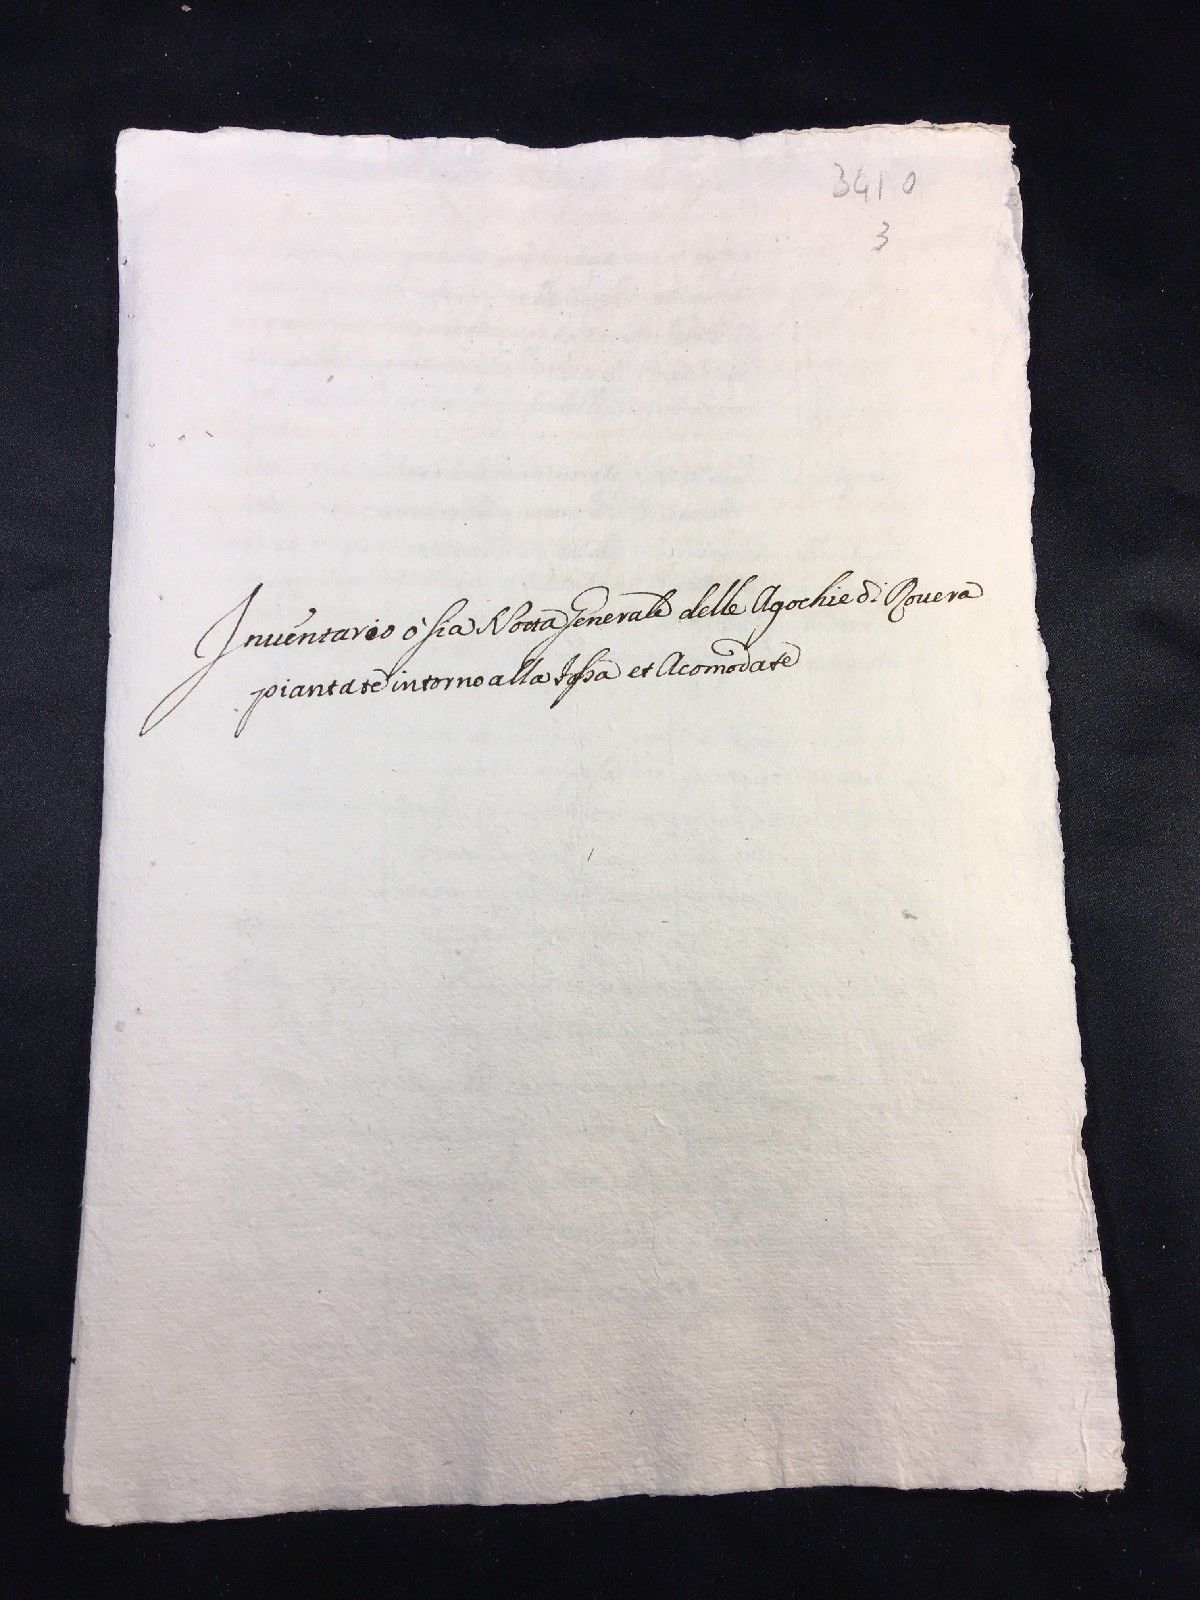 3410
3
Inuentario ò sia Notta Generale delle Agochie di Rouera
piantate intorno alla et Acomodate